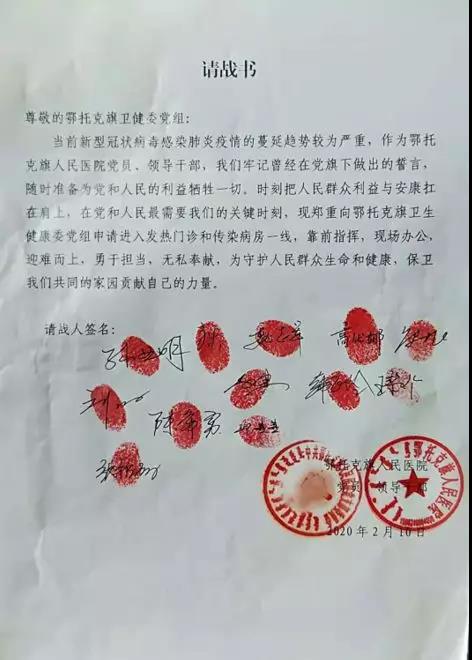 请战书
尊敬的鄂托克旗卫健委党组：
当前新型冠状病毒感染肺炎疫情的蔓延趋势较为严重，作为鄂托
克旗人民医院党员、领导干部，我们牢记曾经在党旗下做出的誓言，
随时准备为党和人民的利益牺牲一切。时刻把人民群众利益与安康扛
在肩上，在党和人民最需要我们的关键时刻，现郑重向鄂托克旗卫生
健康委党组申请进入发热门诊和传染病房一线，靠前指挥，现场办公，
迎难而上，勇于担当，无私奉献，为守护人民群众生命和健康，保卫
我们共同的家园贡献自己的力量。
请战人签名：
鄂托克旗人民医院
党员 领导干部
2020 年 2 月 10 日
鄂托克旗人民医院